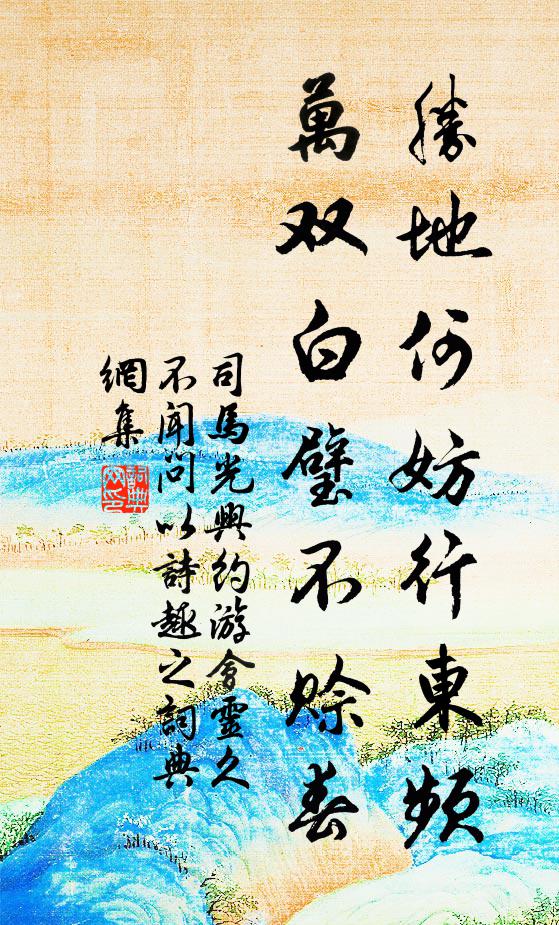 勝地何妨行東頻
萬双白璧不賒春
司馬光與約游會靈久
不聞問以詩趣之詞典
網集